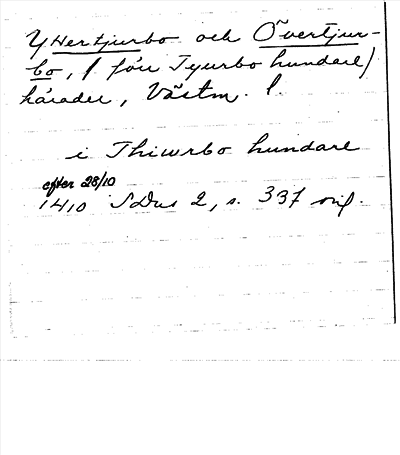 Yttertjurbo och Övertjur-
bo, f för Tjurbo hundare)
härader, Västm. l.
i Thiwrbo hundare
efter 28/10
1410 SDns 2, s. 337 orig.